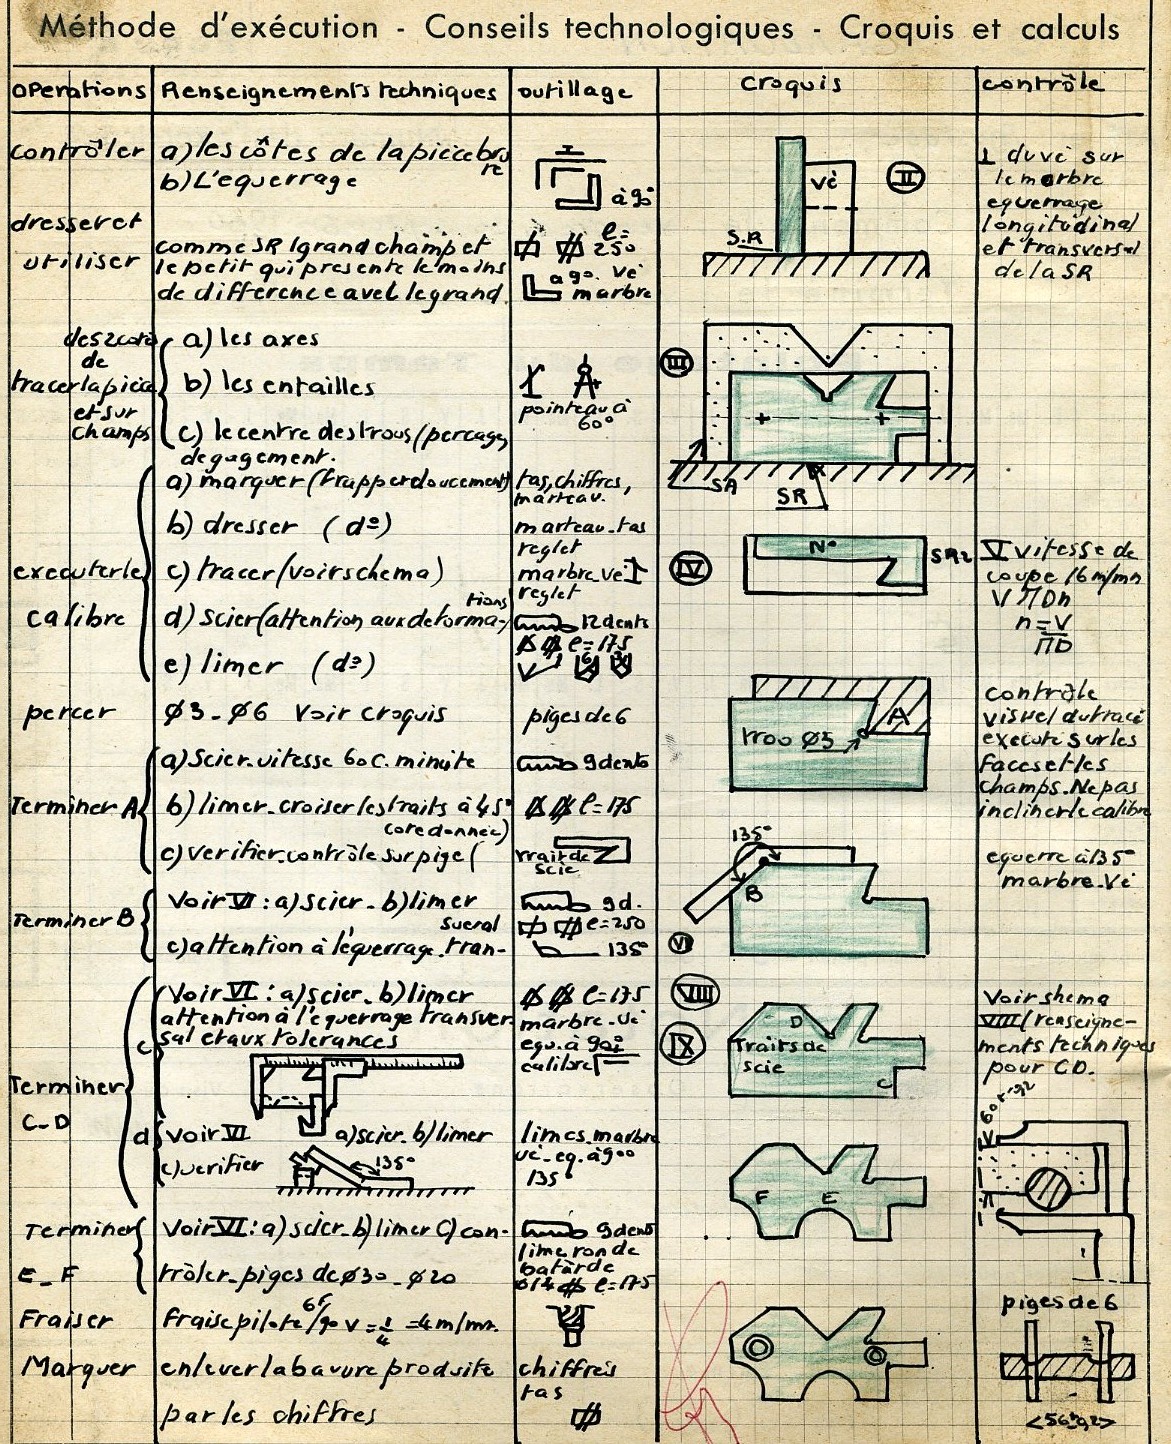 Méthode d'exécution - Conseils technologiques - Croquis et calculs
operations Renseignements techniques outillage croquis contrôle
contrôler a) les côtes de la pièce bru
te
b) L'equerrage
à 90°
dresser et
utiliser
comme SR 1 grand champ et
le petit qui presente le moins
de difference avec le grand.
l=
250
a 90. vé
marbre
S.R
Vé
II
⊥ du vé sur
le marbre
equerrage
longitudinal
et transversal
de la SR
des 2 cotés
de
tracer la pièce
et sur
champs
a) les axes
b) les entailles
c) le centre des trous (perçage,
degagement.
pointeau à
60°
III
SA
SR
executer le
calibre
a) marquer (frapper doucement)
b) dresser (d°)
c) tracer (voir schema)
d) scier (attention aux deforma-
tions)
e) limer (d°)
tas, chiffres,
marteau.
marteau-tas
reglet
marbre-vé
reglet
12 dents
l=175
IV
N°
SR2
V vitesse de
coupe 16 m/mn
V πDn
n=V
πD
percer Ø3-Ø6 Voir croquis piges de 6
trou Ø3
A
contrôle
visuel du tracé
executé sur les
faces et les
champs. Ne pas
incliner le calibre
Terminer A
a) Scier. vitesse 60 c. minute
b) limer-croiser les traits à 45°
c) verifier-contrôle sur pige (
cote donnée)
9 dents
l=175
trait de
scie
135°
B
VI
equerre à 135°
marbre-Vé
Terminer B
Voir VI : a) scier - b) limer
c) attention à l'équerrage tran-
sversal
9 d.
l=250
135°
Terminer
C-D
c
Voir VI : a) scier - b) limer
attention à l'equerrage transver
sal et aux tolerances
l=175
marbre-vé
equ. à 90°
calibre
VIII
IX
D
Traits de
scie
C
Voir shema
VIII (renseigne-
ments techniques
pour CD.
d
Voir VI a) scier - b) limer
c) verifier
135°
limes. marbre
vé-eq. à 90°
135°
F E
Terminer
E-F
Voir VI : a) scier-b) limer C) con-
trôler-piges de Ø30-Ø20
9 dents
lime ronde
batârde
Ø14 l=175
Fraiser
fraise pilote 6f/90 v=1/4 =4 m/mn.
piges de 6
Marquer
enlever la bavure produite
par les chiffres
chiffres
tas